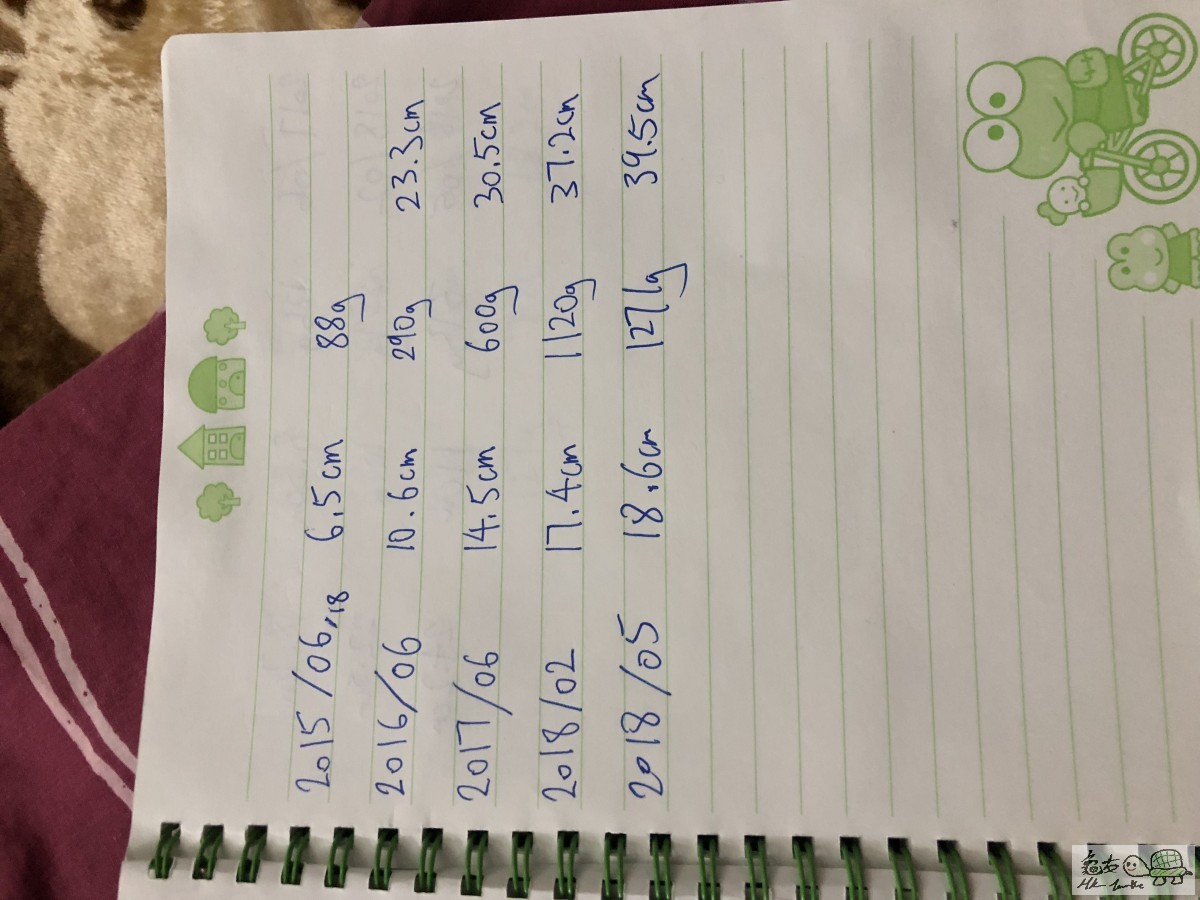 2015/06,18 6.5cm 88g
2016/06 10.6cm 290g 23.3cm
2017/06 14.5cm 600g 30.5cm
2018/02 17.4cm 1120g 37.2cm
2018/05 18.6cm 1271g 39.5cm